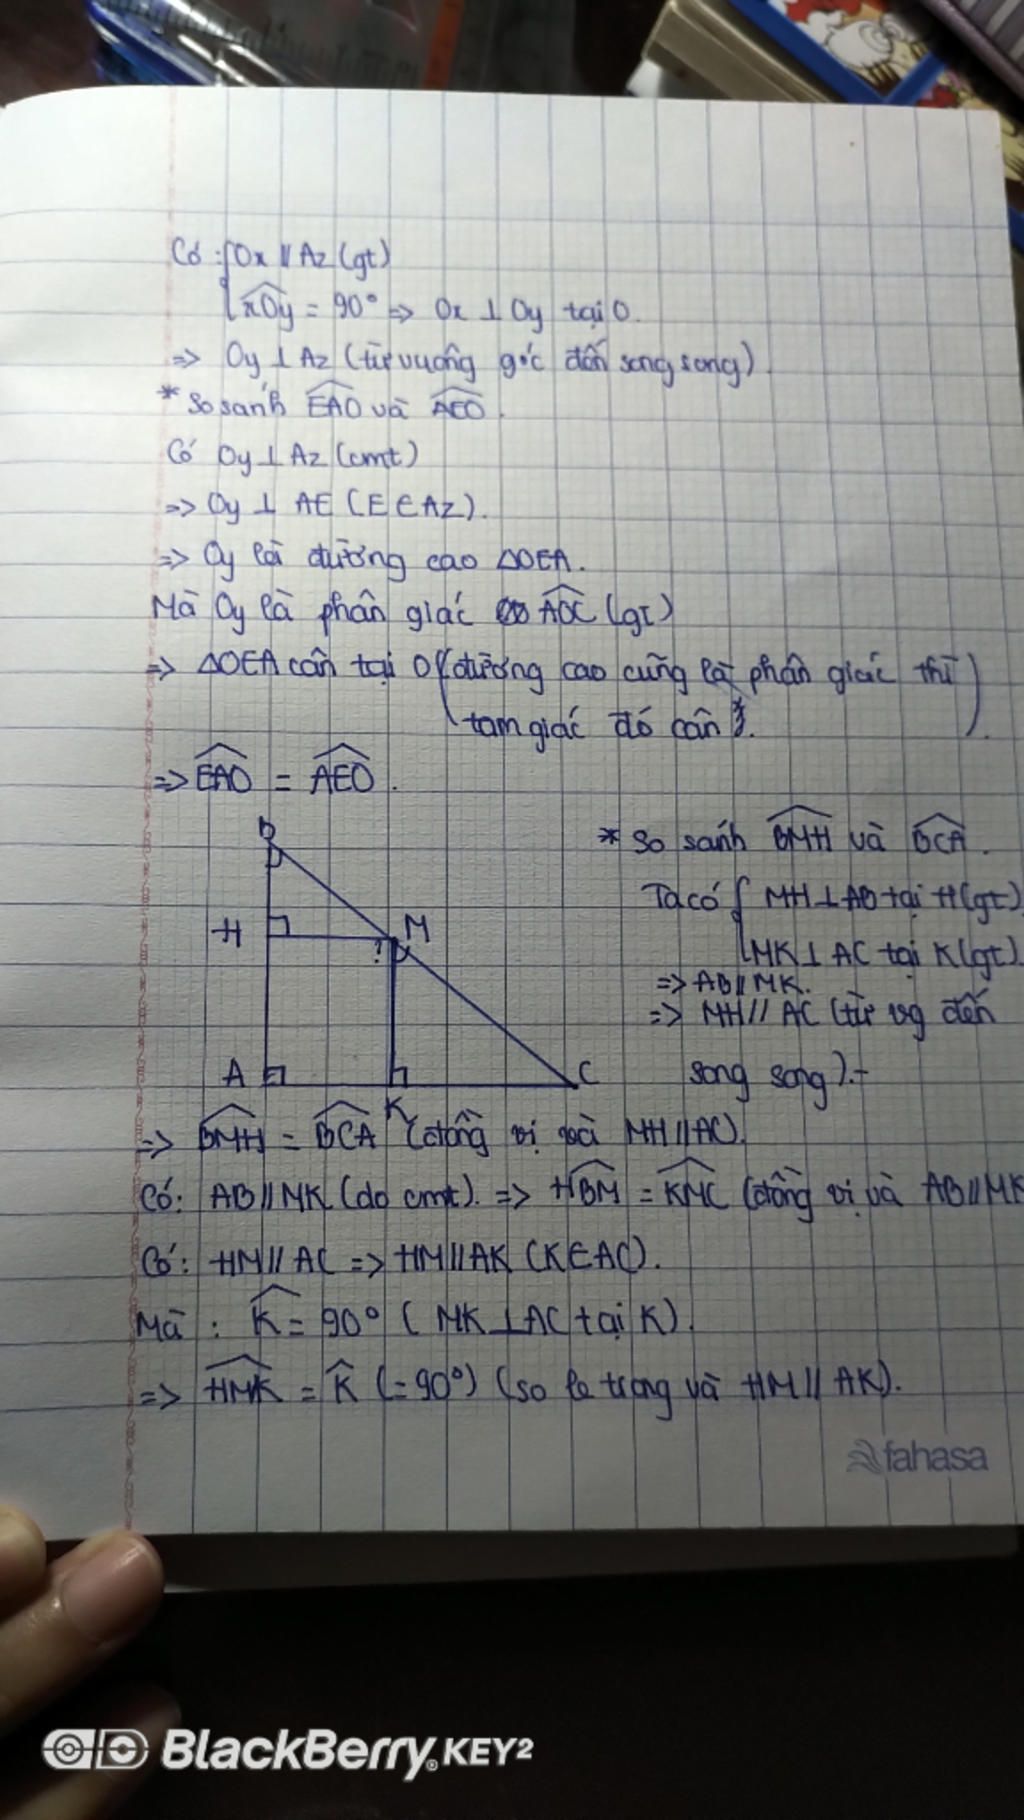 Có : { Ox // Az (gt)
xOy = 90° => Ox ⊥ Oy tại O.
=> Oy ⊥ Az (từ vuông góc đến song song).
* So sánh EAO và AEO.
Có Oy ⊥ Az (cmt)
=> Oy ⊥ AE (E ∈ Az).
=> Oy là đường cao ΔOEA.
Mà Oy là phân giác AOC (gt)
=> ΔOEA cân tại O (đường cao cũng là phân giác thì
tam giác đó cân).
=> EAO = AEO.
B
H
M
?
A
K
C
* So sánh BMH và BCA.
Ta có { MH ⊥ AB tại H (gt)
MK ⊥ AC tại K (gt).
=> AB // MK.
=> MH // AC (từ vg đến
song song).-
=> BMH = BCA (đồng vị và MH // AC).
Có: AB // MK (do cmt). => HBM = KMC (đồng vị và AB // MK
Có: HM // AC => HM // AK (K ∈ AC).
Mà : K = 90° ( MK ⊥ AC tại K).
=> HMK = K (= 90°) (so le trong và HM // AK).
fahasa
BlackBerry KEY2